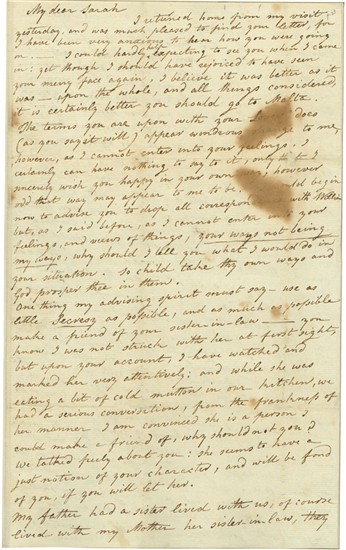 My dear Sarah
I returned home from my visit
yesterday, and was much pleased to find your letter for
I have been very anxious to hear how you were going
on — I could hardly help expecting to see you when I came
in; yet though I should have rejoiced to have seen
your merry face again, I believe it was better as it
was — upon the whole, and all things considered,
it is certainly better you should go to Malta.
The terms you are upon with your does
(as you say it will) appear wondrous to me,
however, as I cannot enter into your feelings, I
certainly can have nothing to say to it, only that I
sincerely wish you happy in your own way, however
odd that way may appear to me to be. would begin
now to advise you to drop all correspon with William
but, as I said before, as I cannot enter into your
feelings, and views of things, your ways not being
my ways, why should I tell you what I would do in
your situation. So child take thy own ways and
God prosper thee in them.
One thing my advising spirit must say — use as
little Secresy as possible, and as much as possible
make a friend of your sister-in-law — you
know I was not struck with her at first sight;
but upon your account, I have watched and
marked her very attentively; and while she was
eating a bit of cold mutton in our kitchen, we
had a serious conversation, from the frankness of
her manner I am convinced she is a person I
could make a friend of, why should not you?
we talked freely about you: she seems to have a
just notion of your character, and will be fond
of you, if you will let her.
My father had a sister lived with us, of course
lived with my Mother her sister-in-law, they